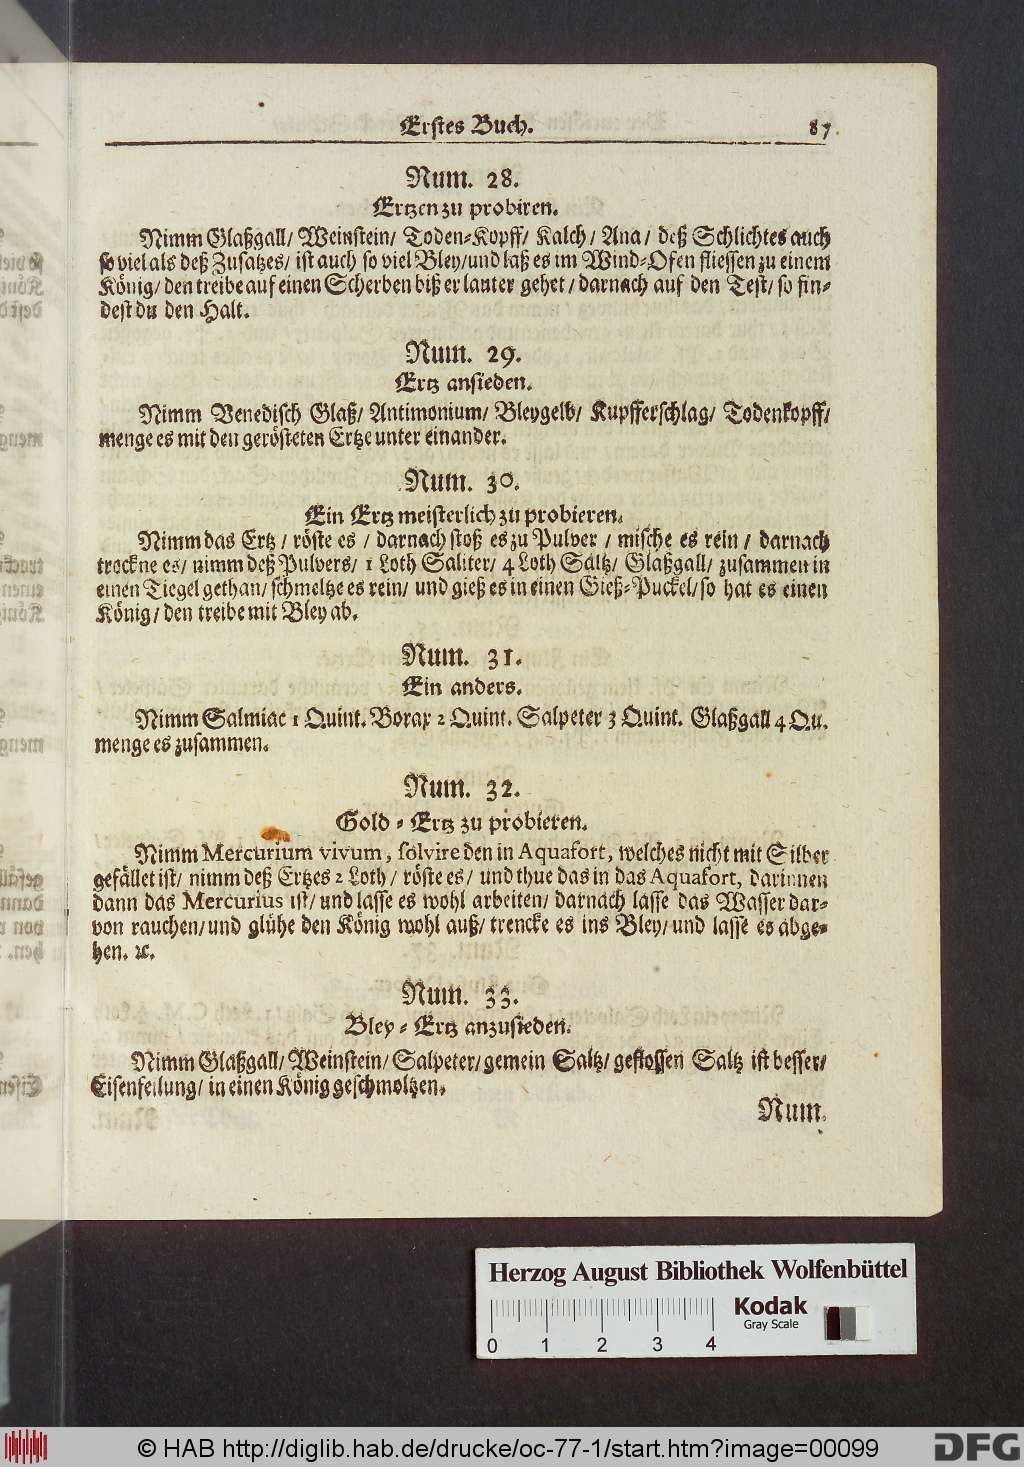 Erstes Buch. 87
Num. 28.
Ertzen zu probiren.
Nimm Glaßgall/ Weinstein/ Toden-Kopff/ Kalch/ Ana/ deß Schlichtes auch
so viel als deß Zusatzes/ ist auch so viel Bley/ und laß es im Wind-Ofen fliessen zu einem
König/ den treibe auf einen Scherben biß er lauter gehet/ darnach auf den Test/ so fin-
dest du den Halt.
Num. 29.
Ertz ansieden.
Nimm Venedisch Glaß/ Antimonium/ Bleygelb/ Kupfferschlag/ Todenkopff/
menge es mit den gerösteten Ertze unter einander.
Num. 30.
Ein Ertz meisterlich zu probieren.
Nimm das Ertz/ röste es/ darnach stoß es zu Pulver/ mische es rein/ darnach
trockne es/ nimm deß Pulvers/ 1 Loth Saliter/ 4 Loth Saltz/ Glaßgall/ zusammen in
einen Tiegel gethan/ schmeltze es rein/ und gieß es in einen Gieß-Puckel/ so hat es einen
König/ den treibe mit Bley ab.
Num. 31.
Ein anders.
Nimm Salmiac 1 Quint. Borax 2 Quint. Salpeter 3 Quint. Glaßgall 4 Qu.
menge es zusammen.
Num. 32.
Gold-Ertz zu probieren.
Nimm Mercurium vivum, solvire den in Aquafort, welches nicht mit Silber
gefället ist/ nimm deß Ertzes 2 Loth/ röste es/ und thue das in das Aquafort, darinnen
dann das Mercurius ist/ und lasse es wohl arbeiten/ darnach lasse das Wasser dar-
von rauchen/ und glühe den König wohl auß/ trencke es ins Bley/ und lasse es abge-
hen. ꝛc.
Num. 33.
Bley-Ertz anzusieden.
Nimm Glaßgall/ Weinstein/ Salpeter/ gemein Saltz/ gestossen Saltz ist besser/
Eisenfeilung/ in einen König geschmoltzen.
Num.
Herzog August Bibliothek Wolfenbüttel
0 1 2 3 4
Kodak
Gray Scale
© HAB http://diglib.hab.de/drucke/oc-77-1/start.htm?image=00099
DFG